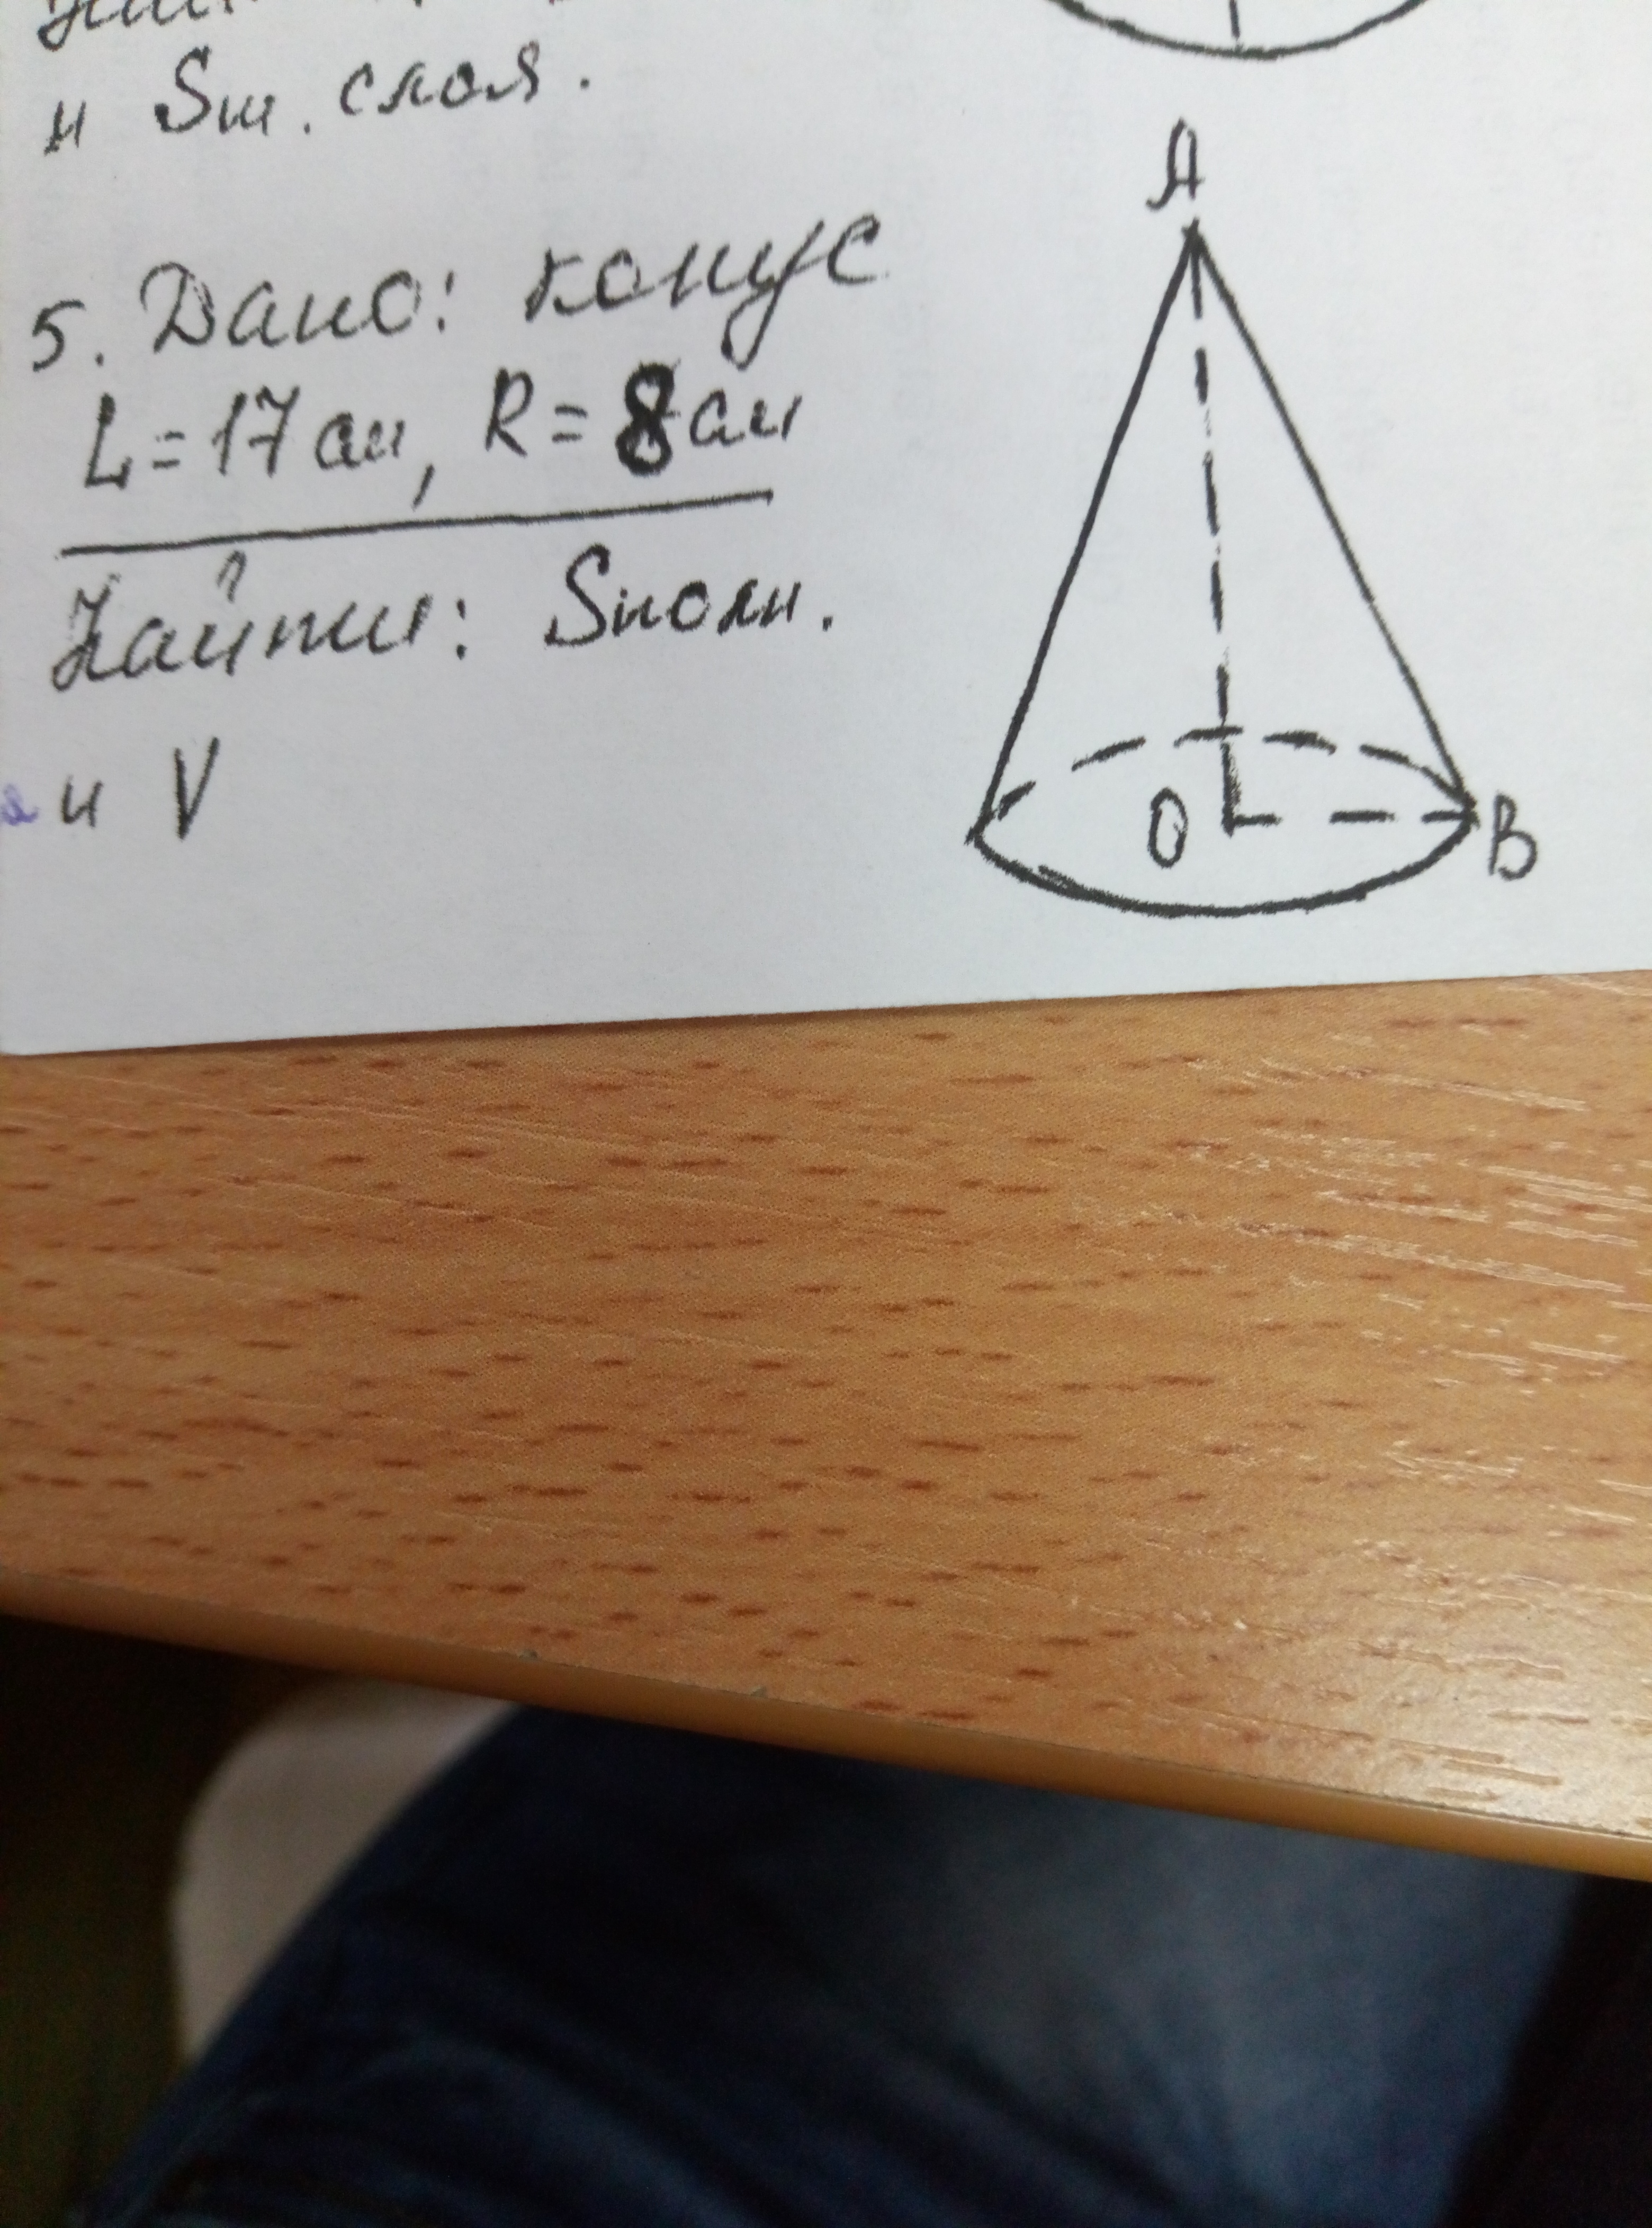 и Sш. слоя.
A
5. Дано: конус
L=17см, R=8см
Найти: Sполн.
и V
O
B